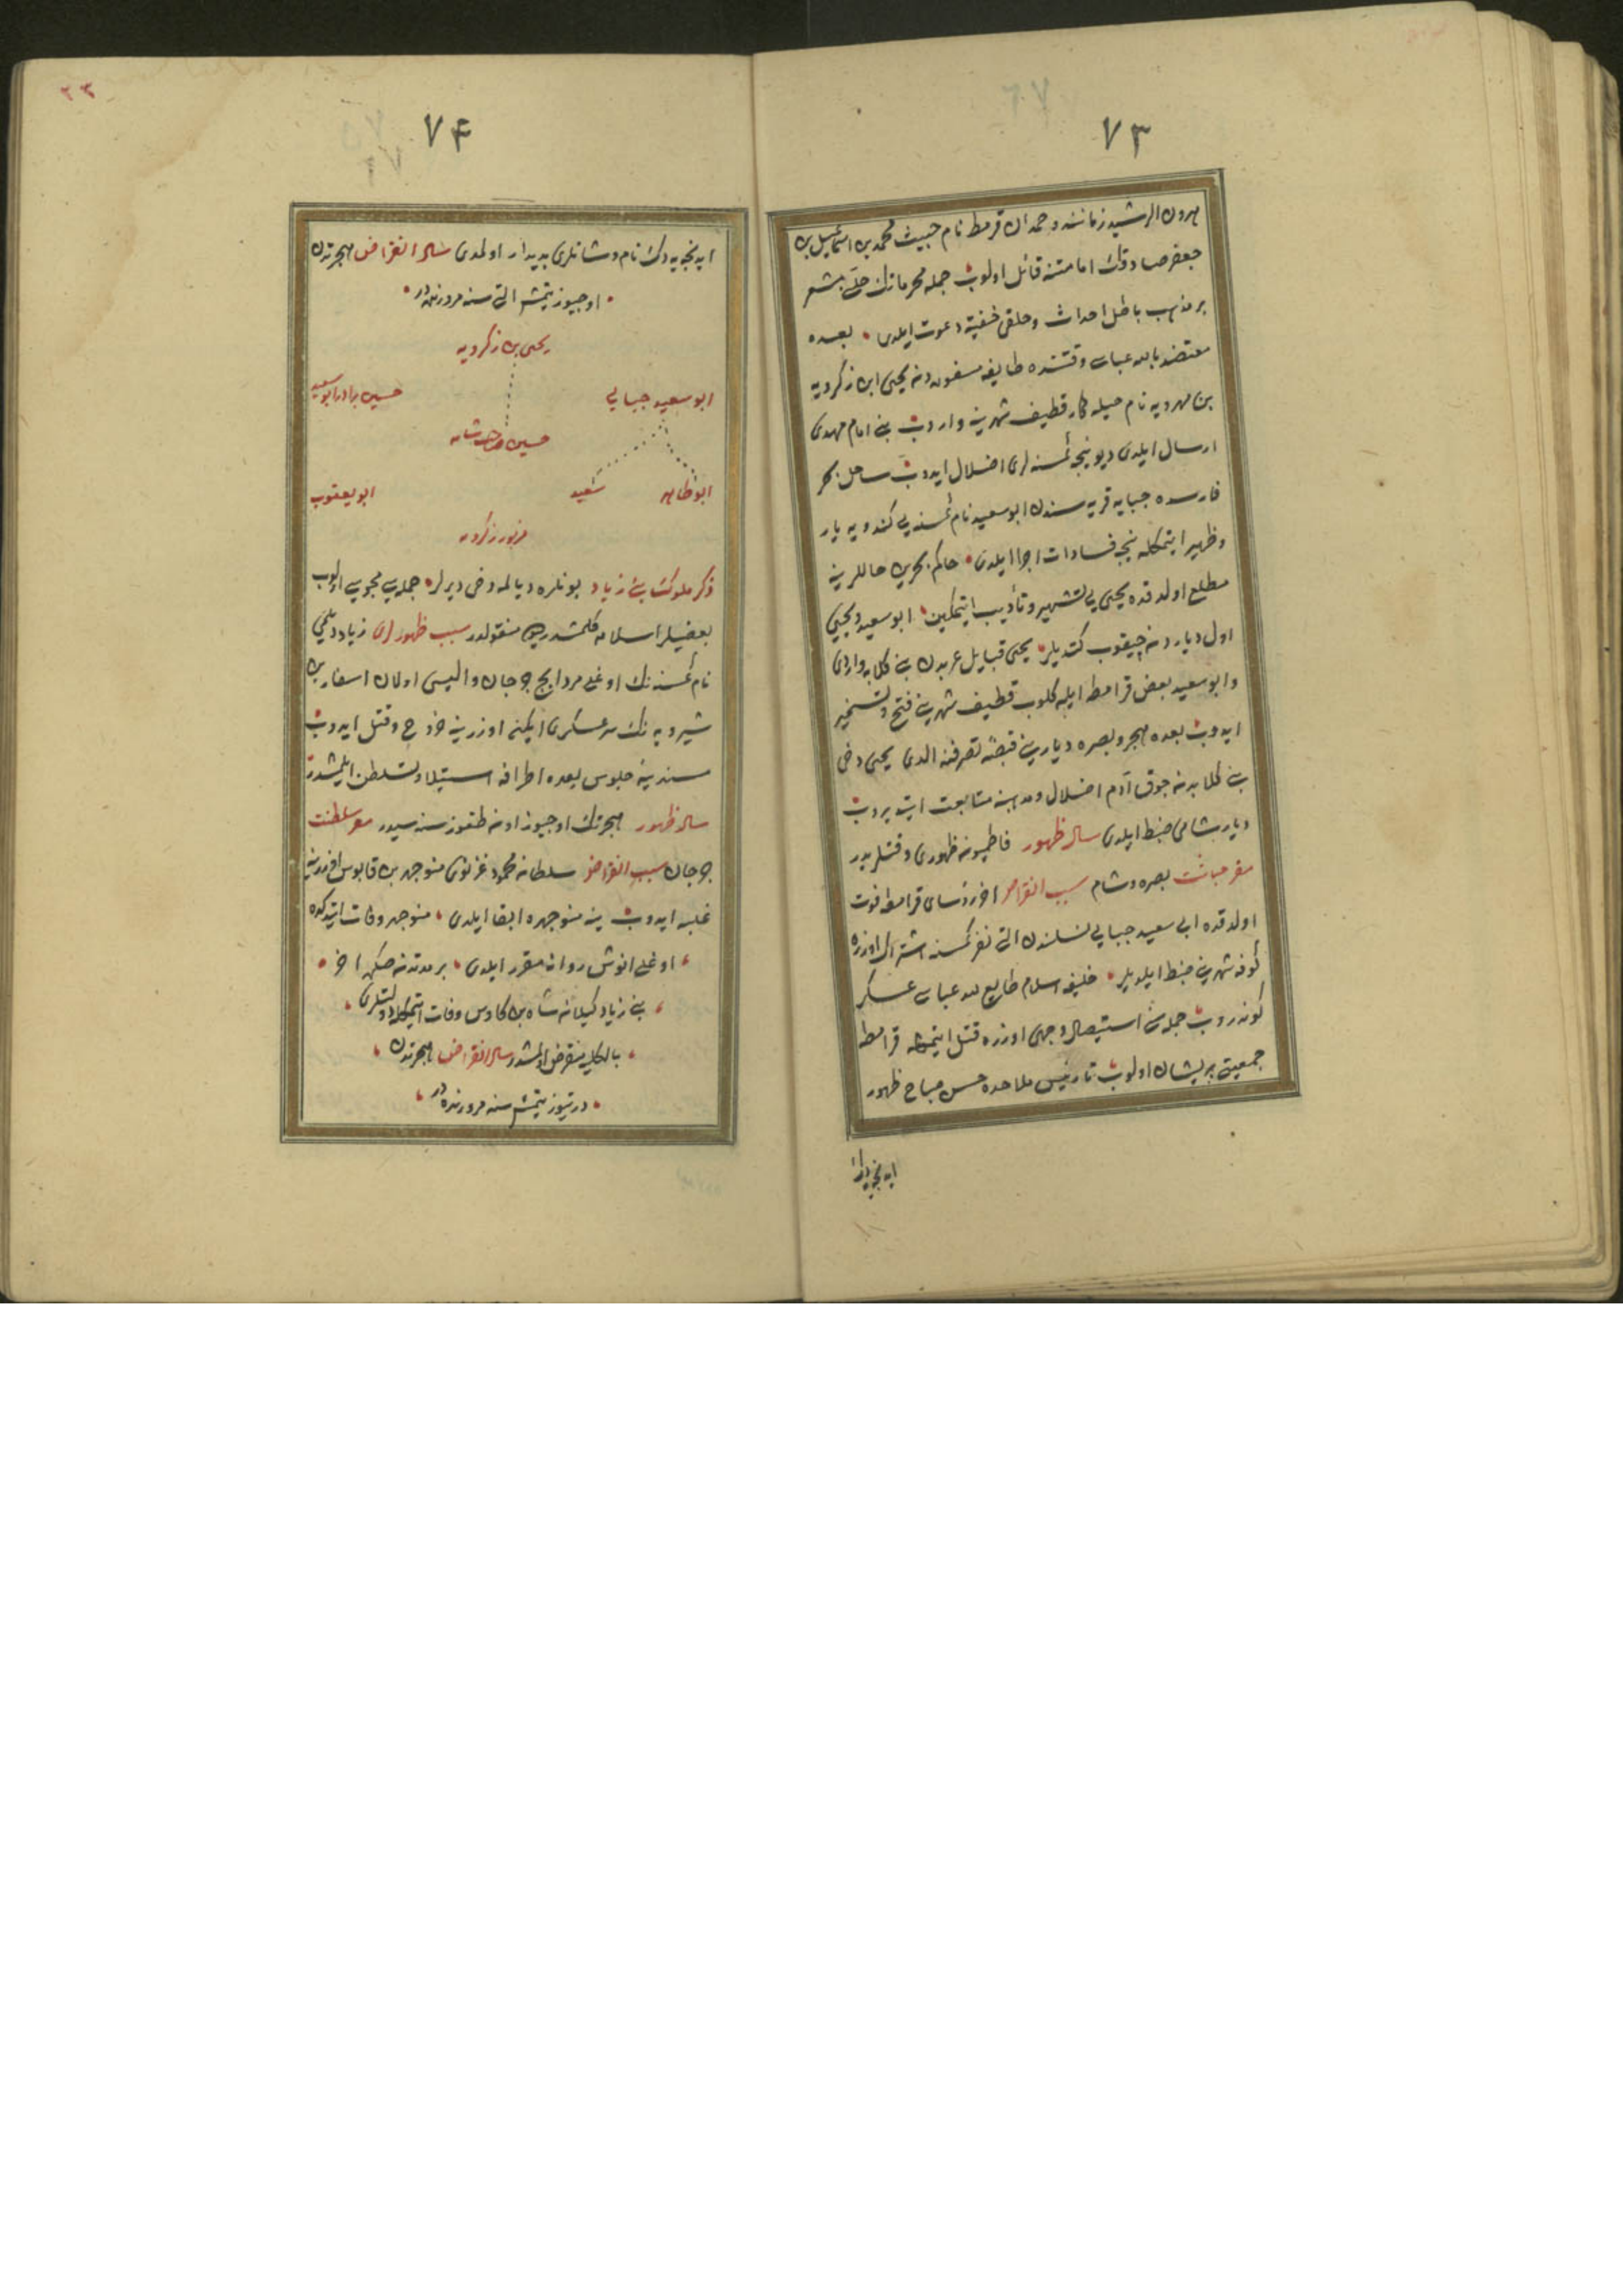 ٧٣
هرون الرشيد زماننده حمدان قرمط نام خبيث محمد بن اسماعيل بن
جعفر صادقك امامتنه قائل اولوب جمله محرماتك حلّنى مشعر
بر مذهب باطل احداث وخلقى خفيةً دعوت ايلدى • بعده
معتضد بالله عباسى وقتنده طايفه دن يحيى ابن زكرويه
بن مهرويه نام حيله كار قطيف شهرينه واروب بنى امام مهدى
ارسال ايلدى ديو نيجه كمسنه لرى اضلال ايدوب ساحل بحر
فارسده جبايه قريه سندن ابو سعيد نام كمسنه يى كندويه يار
وظهير ايتمكله نيجه فسادات اجرا ايلدى • حاكم بحرين حاللرينه
مطلع اولدقده يحيى يى تشهير وتأديب ايتمكين ابو سعيد ويحيى
اول دياردن چيقوب كتديلر • يحيى قبايل عربدن بنى كلابه واردى
وابو سعيد بعض قرامطه ايله كلوب قطيف شهرينى فتح وتسخير
ايدوب بعده هجر وبصره ديارينى قبضهٔ تصرفنه الدى يحيى دخى
بنى كلابدن چوق آدم اضلال ومذهبنه متابعت ايتديروب
ديار شامى ضبط ايلدى سال ظهور فاطميون ظهورى وقتلريدر
مقر خباثت بصره وشام سبب انقراض اخر رؤساى قرامطه فوت
اولدقده ابى سعيد جبايى نسلندن التى نفر كمسنه اشتراك اوزره
كوفه شهرينى ضبط ايلديلر • خليفه اسلام طايع لله عباسى عسكر
كوندروب جمله سنى استيصال وجهى اوزره قتل ايتمكله قرامطه
جمعيتى پريشان اولوب تا رئيس ملاحده حسن صباح ظهور
ايدنجيه دك
٢٣
٧۴
ايدنجيه دك نام ونشانلرى پديدار اولمدى سال انقراض هجرتدن
• اوچيوز يتمش التى سنه مرورنده در •
يحيى بن زكرويه
ابو سعيد جبايى
حسين برادر ابو سعيد
حسين صاحب شامه
ابو طاهر
سعيد
ابو يعقوب
مزبور زكرويه
ذكر ملوك بنى زياد بونلره ديالمه دخى ديرلر • جمله سى مجوسى اولوب
بعضيلر اسلامه كلمشدر ديو منقولدر سبب ظهورلرى زياد ديلمى
نام كمسنه نك اوغلى مرداويج جرجان واليسى اولان اسفار بن
شيرويه نك سرعسكرى ايكن اوزرينه خروج وقتل ايدوب
مسندينه جلوس بعده اطرافه استيلا وتسلطن ايلمشدر
سال ظهور هجرتك اوچيوز اون طقوز سنه سيدر مقر سلطنت
جرجان سبب انقراض سلطان محمود غزنوى منوچهر بن قابوس اوزرينه
غلبه ايدوب ينه منوچهره ابقا ايلدى • منوچهر وفات ايتدكده
• اوغلى انوش روان مقرر ايلدى • بر مدتدن صكره اخر •
• بنى زياد كيلان شاه بن كاوس وفات ايتمكله دولتلرى •
• بالكليه منقرض اولمشدر سال انقراض هجرتدن •
• درتيوز يتمش سنه مرورنده در •